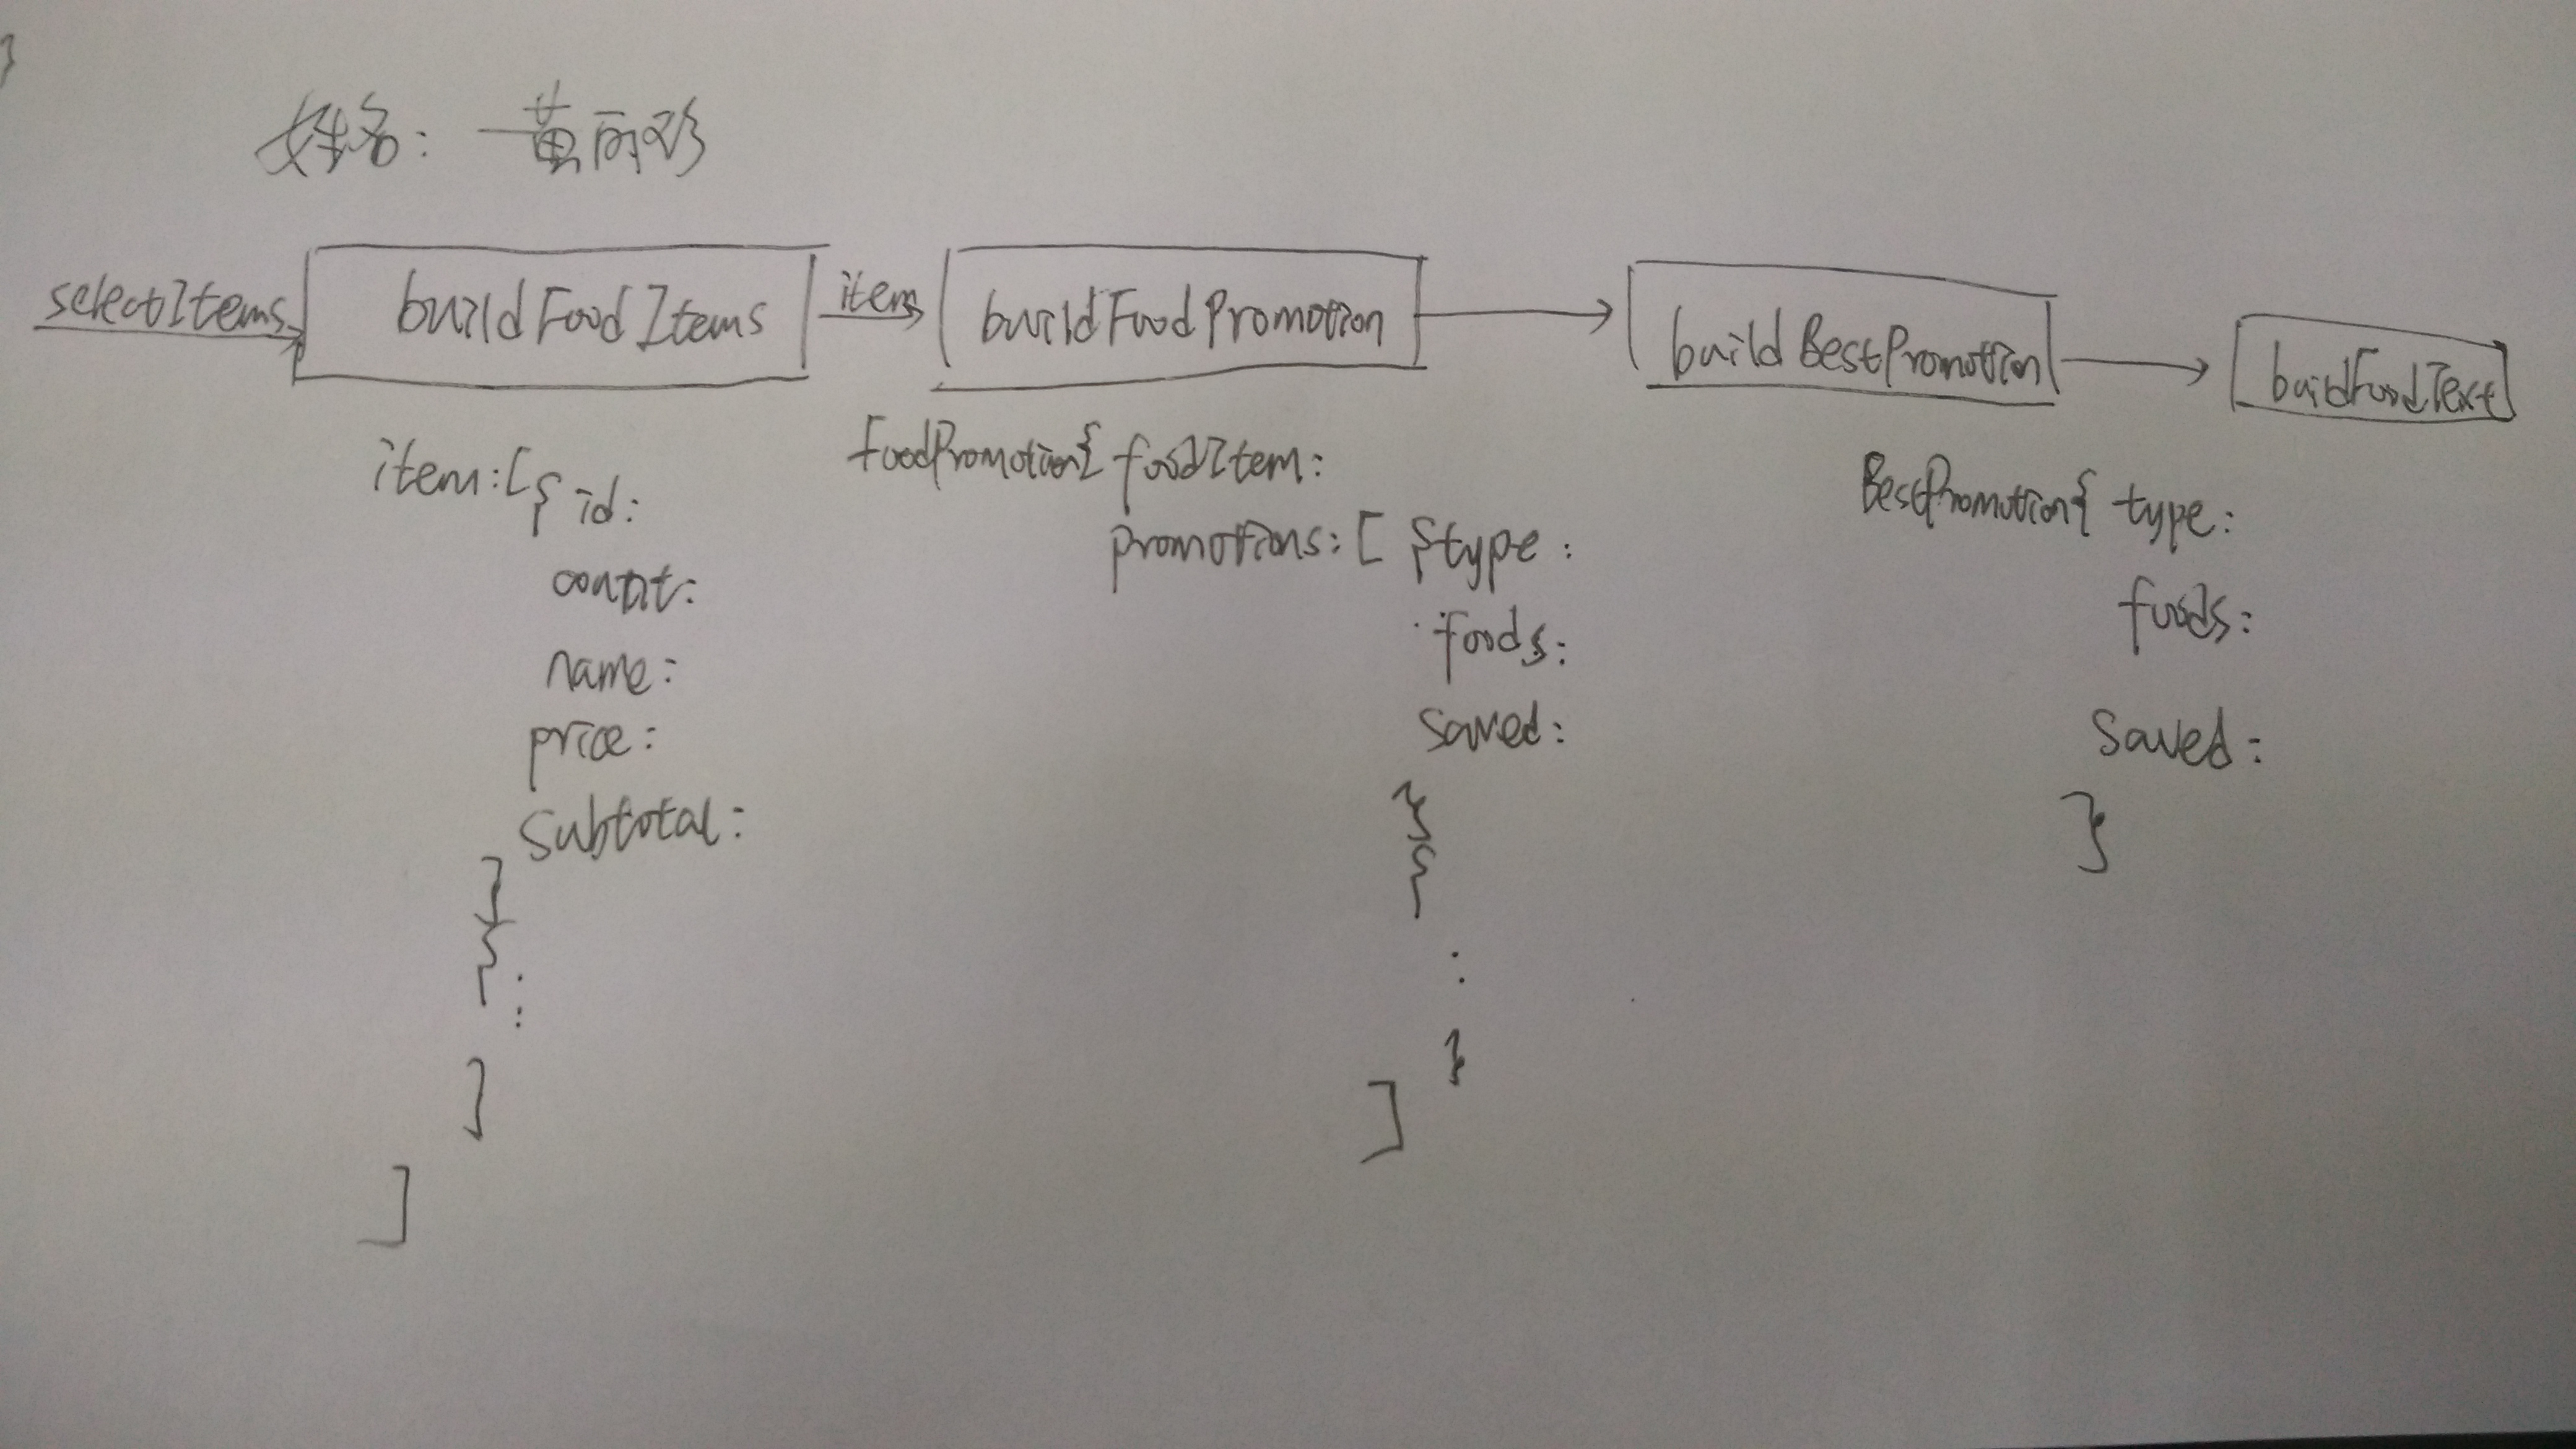 }
姓名: 黄丽珍
selectItems buildFoodItems items buildFoodPromotion buildBestPromotion buidFoodText
item:[{ id:
count:
name:
price:
subtotal:
}
{
:
]
]
FoodPromotion{ foodItem:
promotions: [ {type:
foods:
saved:
}
{
:
}
]
BestPromotion{ type:
foods:
saved:
}